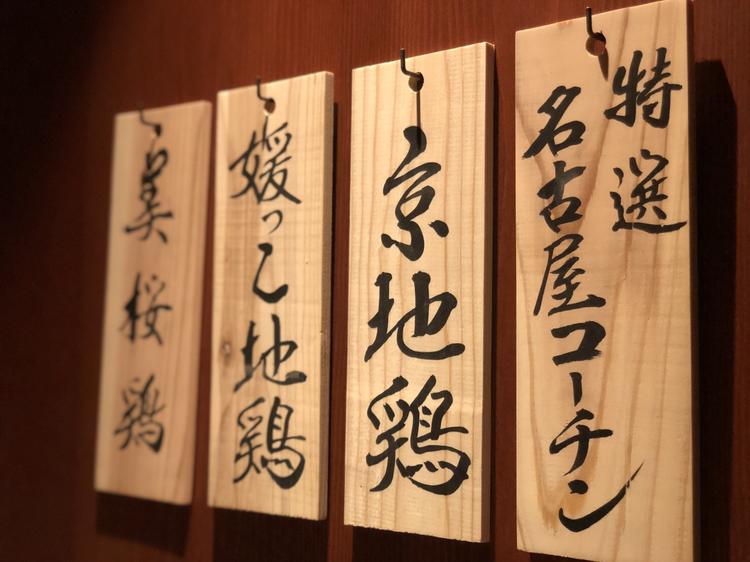 特選
名古屋コーチン
京地鶏
媛っこ地鶏
美桜鶏